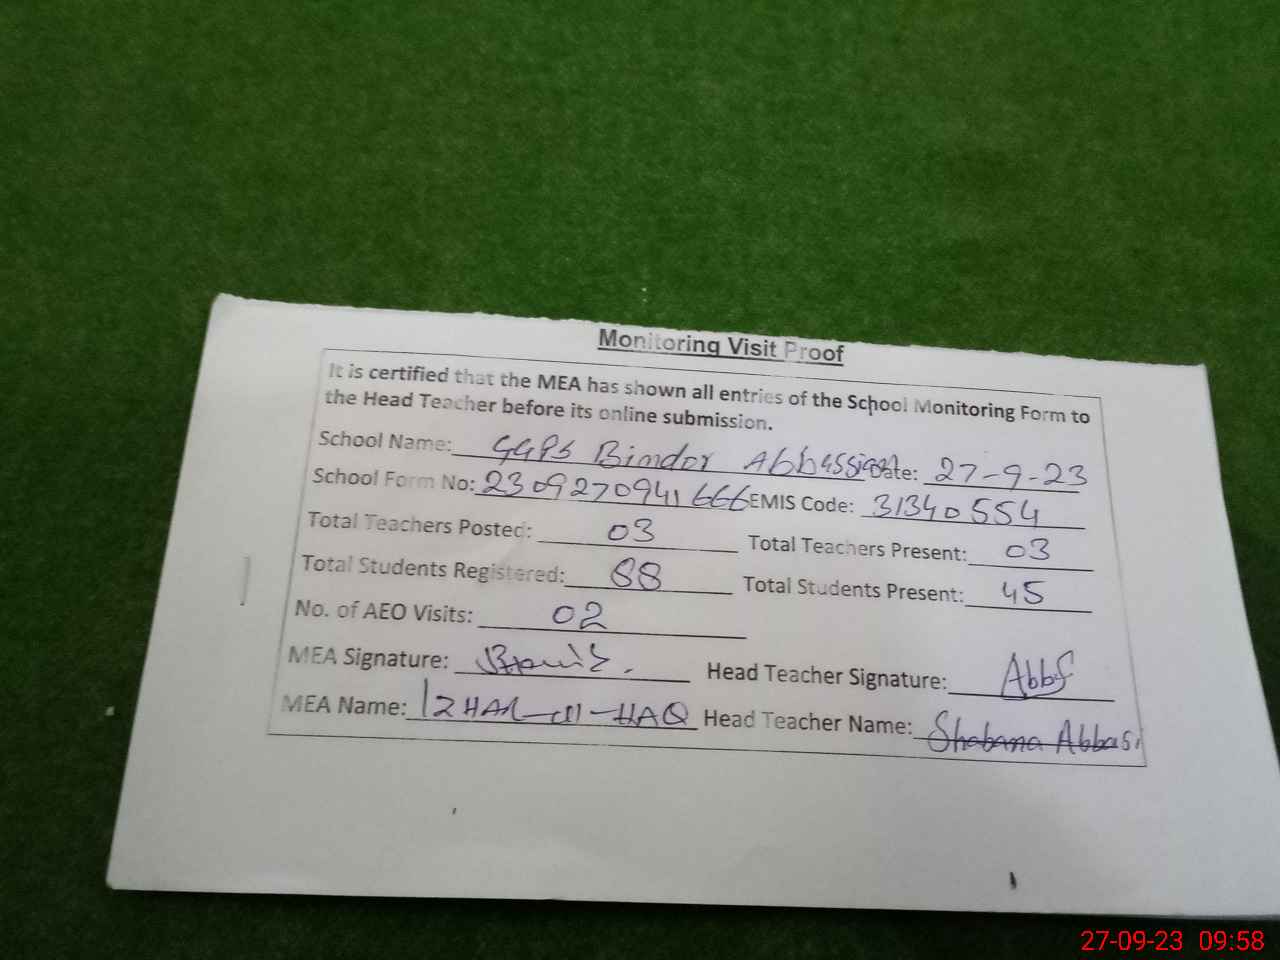 Monitoring Visit Proof
It is certified that the MEA has shown all entries of the School Monitoring Form to
the Head Teacher before its online submission.
School Name: GGPS Bindor Abbassian Date: 27-9-23
School Form No: 2309270941666 EMIS Code: 31340554
Total Teachers Posted: 03 Total Teachers Present: 03
Total Students Registered: 88 Total Students Present: 45
No. of AEO Visits: 02
MEA Signature: Head Teacher Signature: Abbs
MEA Name: IZHAR-ul-HAQ Head Teacher Name: Shabana Abbasi
27-09-23 09:58